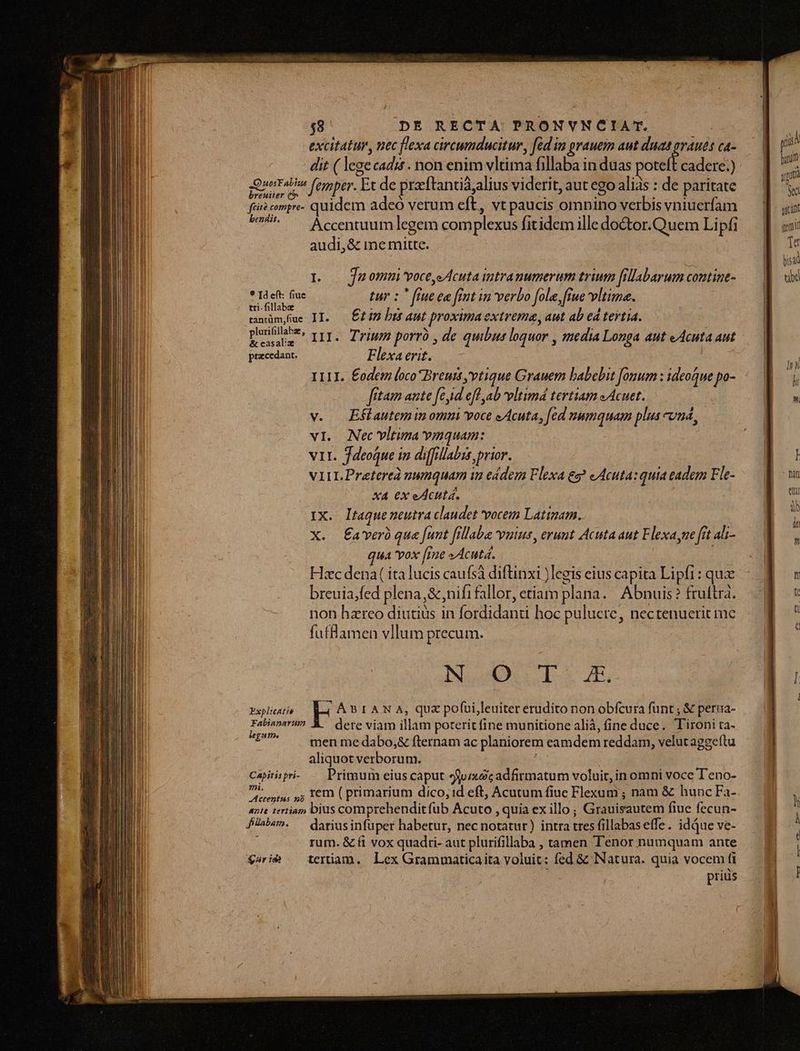 58 DE RECTA PRONVNCIAT.
excitatur, nec flexa circumducitur, sed in grauem aut duas graues ca-
dit (lege cadis. non enim vltima sillaba in duas potest cadere.)
semper. Et de præstantiâ, alius viderit, aut ego aliàs: de paritate
quidem adeò verum est, vt paucis omnino verbis vniuersam
Accentuum legem complexus sit idem ille doctor. Quem Lipsi
audi, & me mitte.
Quos Fabius
breuiter &
scitè compre-
hendit.
I. In omni voce, Acuta intra numerum trium sillabarum contine-
tur: * siue eæ sint in verbo solæ, siue vltimæ.
II. Et in his aut proxima extremæ, aut ab eâ tertia.
III. Trium porrò, de quibus loquor, media Longa aut Acuta aut
Flexa erit.
IIII. Eodem loco Breuis, vtique Grauem habebit sonum: ideoque po-
sitam ante se, id est, ab vltimâ tertiam Acuet.
V. Est autem in omni voce Acuta, sed numquam plus vnâ,
VI. Nec vltima vmquam:
VII. Ideoque in dissillabis, prior.
VIII. Præterea numquam in eâdem Flexa & Acuta: quia eadem Fle-
xa ex Acutâ.
IX. Itaque neutra claudet vocem Latinam.
X. Ea verò quæ sunt sillabæ vnius, erunt Acuta aut Flexa, ne sit ali-
qua vox sine Acutâ.
* Id est: siue
tri-sillabæ
tantùm, siue
plurisillabæ,
& eas aliæ
præcedant.
Hæc dena (ita lucis caussâ distinxi) legis eius capita Lipsi: quæ
breuia, sed plena, &, nisi fallor, etiam plana. Abnuis? frustrà.
non hæreo diutiùs in sordidanti hoc puluere, nec tenuerit me
sufflamen vllum precum.
NOTÆ.
FABIANA, quæ posui, leuiter erudito non obscura sunt; & perua-
dere viam illam poterit sine munitione aliâ, sine duce. Tironi ta-
men me dabo, & sternam ac planiorem eamdem reddam, velut aggestu
aliquot verborum.
Primum eius caput adfirmatum voluit, in omni voce Teno-
rem (primarium dico, id est, Acutum siue Flexum; nam & hunc Fa-
bius comprehendit sub Acuto, quia ex illo; Grauis autem siue secun-
darius insuper habetur, nec notatur) intra tres sillabas esse. idque ve-
rum. & si vox quadri- aut plurisillaba, tamen Tenor numquam ante
tertiam. Lex Grammatica ita voluit: sed & Natura. quia vocem si
priùs
Explicatio
Fabianarum
legum.
Capitis pri-
mi.
Accentus nō
ante tertiam
sillabam.
Cur id?